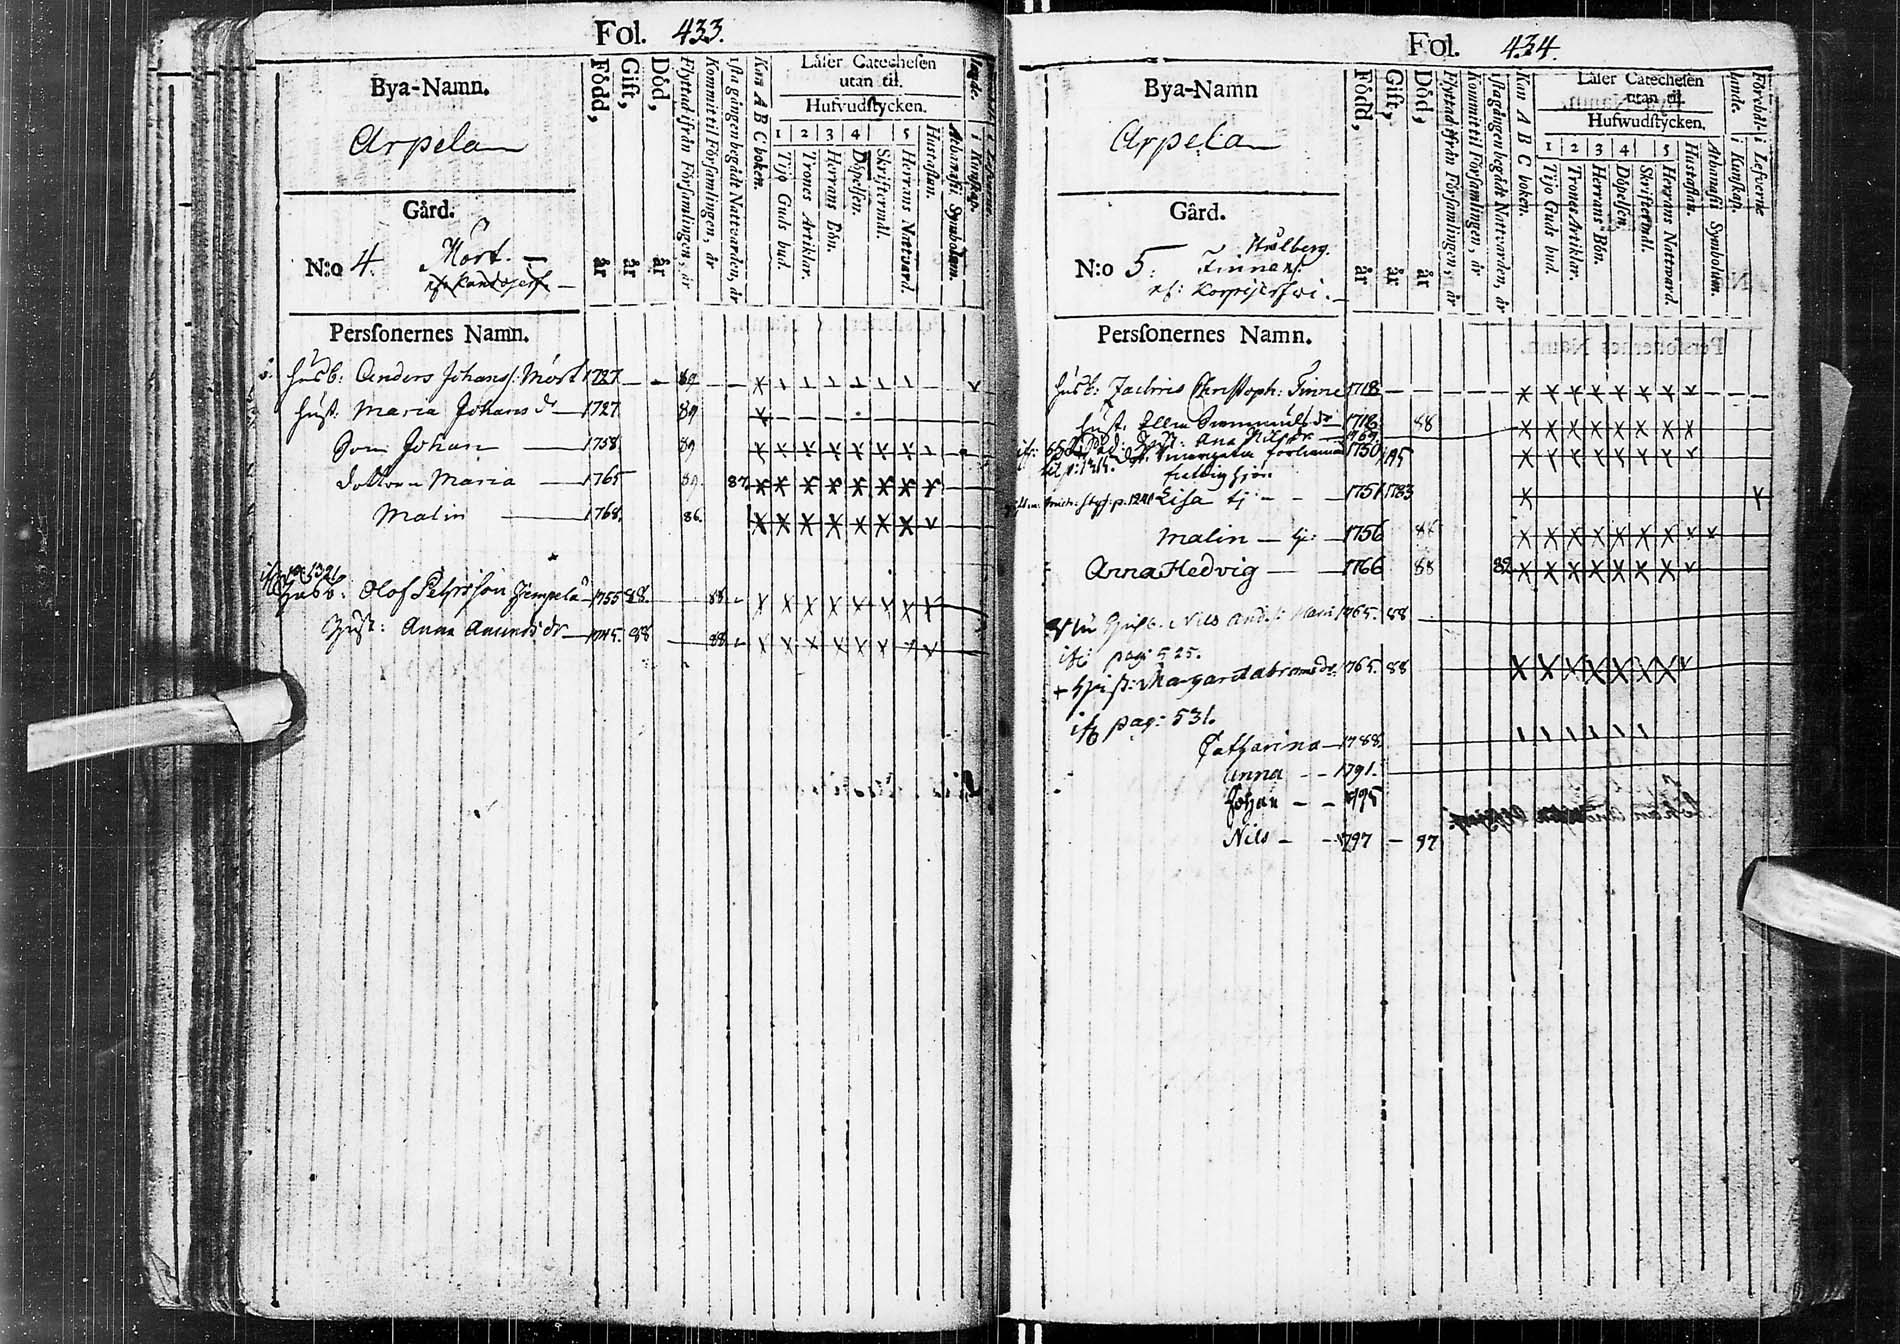 Fol. 433.
Bya-Namn.
Arpela
Gård.
N:o 4. Mört.
Personernes Namn.
Född, år
Gift, år
Död, år
Flyttad ifrån Församlingen, år
Kommit til Församlingen, år
1sta gången begådt Nattvarden, år
Kan A B C boken.
Läser Catechesen
utan til.
Hufvudstycken.
1 2 3 4 5
Tijo Guds bud.
Trones Artiklar.
Herrans Bön.
Döpelsen.
Skriftermål.
Herrans Nattvard.
Hustaflan.
Athanasii Symbolum.
i Kunskap.
husb: Anders Johans: Mört 1727 89
hust: Maria Johansdr 1727 89
Son Johan 1758 89
dottren Maria 1765 89. 87
Malin 1768. 86.
husb: Olof Pehrsson 1755 88. 88
Hust: Anna Amundsdr 1745. 88 88
Fol. 434.
Bya-Namn
Arpela
Gård.
N:o 5: Strålberg.
Finna
Personernes Namn.
Född, år
Gift, år
Död, år
Flyttad ifrån Församlingen, år
Kommit til Församlingen, år
1sta gången begådt Nattvarden, år
Kan A B C boken.
Läser Catechesen
utan til.
Hufwudstycken.
1 2 3 4 5
Tijo Guds bud.
Trones Artiklar.
Herrans Bön.
Döpelsen.
Skriftermål.
Herrans Nattward.
Hustaflan.
Athanasii Symbolum.
Förehål-
lande.
i Kunskap.
i Lefverne
husb: Zachris Christoph: Finne 1718
hust. Ellin 1718 88
Ana Nilsdr 1769
Margeta 1750 95
Lisa tj: 1751 1783
Malin tj: 1756 86
Anna Hedvig 1766 88 82
Husb. Nils And: 1765. 88
ifr pag: 525.
+ Hust: Margar: Abramsdr. 1765. 88
ifr pag: 531.
Catharina 1788.
Anna 1791.
Johan 1795
Nils 1797 97